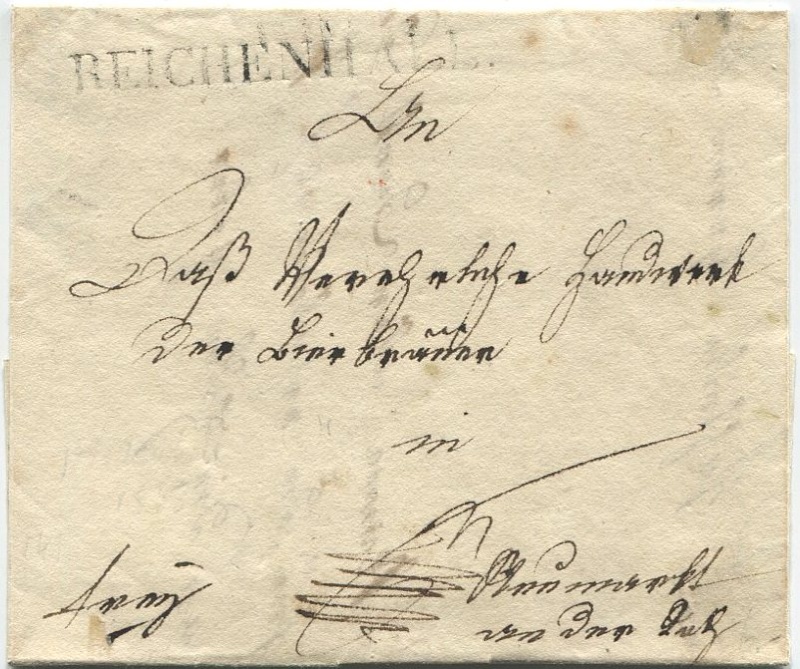 REICHENHALL.
An
Daß Verehrliche Handwerk
der Bierbräuer
in
frey
Neumarkt
an der Rott